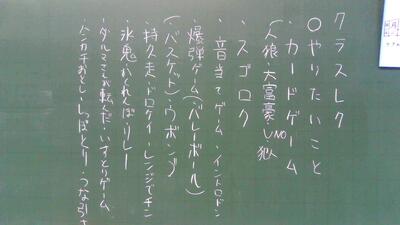 クラスレク
○やりたいこと
・カードゲーム
(人狼・大富豪・UNO・犯
・スゴロク
・音当てゲーム・イントロドン
・爆弾ゲーム(バレーボール)
(バスケット)・ウボンゴ
・持久走・ドロケイ・レンジでチン
・氷鬼・かくれんぼ・リレー
・ダルマさんが転んだ・いすとりゲーム
・ハンカチおとし・しっぽとり・つな引き